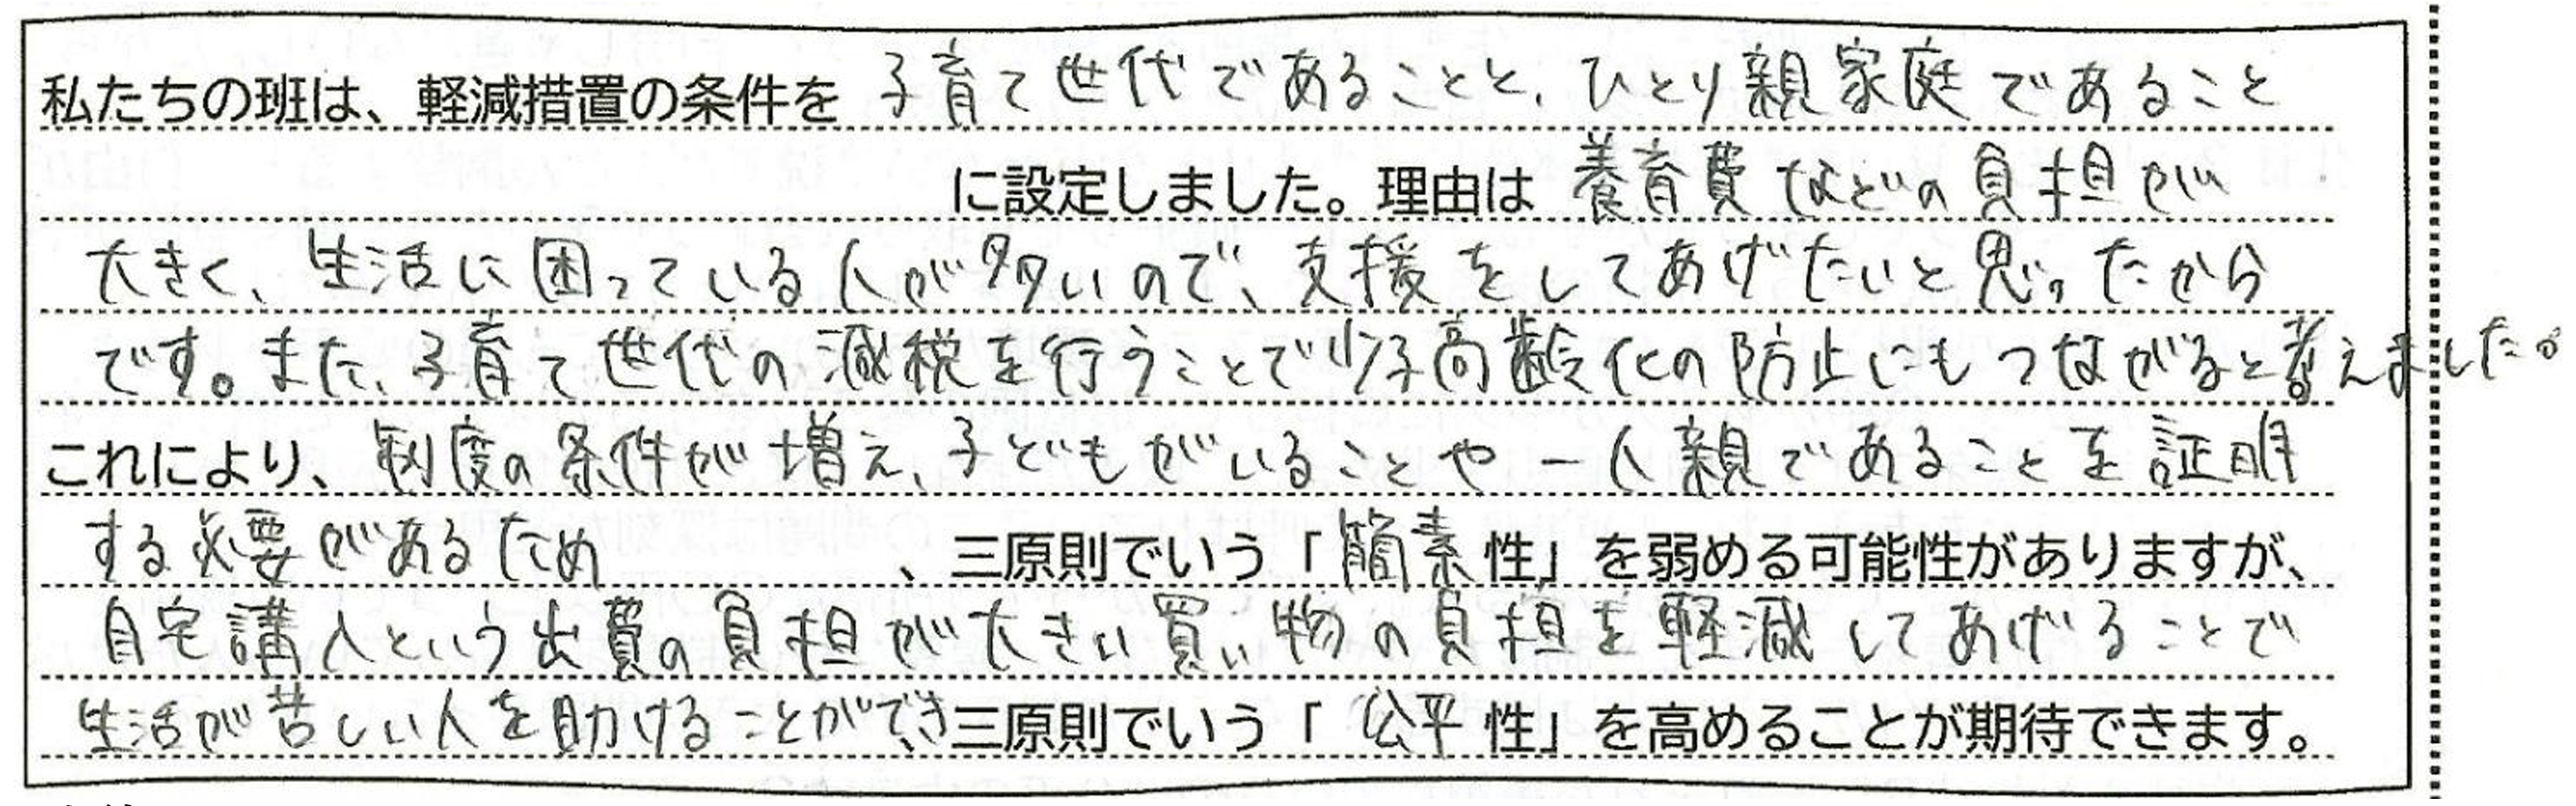 私たちの班は、軽減措置の条件を 子育て世代であることと、ひとり親家庭であること
に設定しました。理由は 養育費などの負担が
大きく、生活に困っている人が多いので、支援をしてあげたいと思ったから
です。また、子育て世代の減税を行うことで少子高齢化の防止にもつながると考えました。
これにより、制度の条件が増え、子どもがいることや一人親であることを証明
する必要があるため 、三原則でいう「簡素性」を弱める可能性がありますが、
自宅講入という出費の負担が大きい買い物の負担を軽減してあげることで
生活が苦しい人を助けることができ、三原則でいう「公平性」を高めることが期待できます。